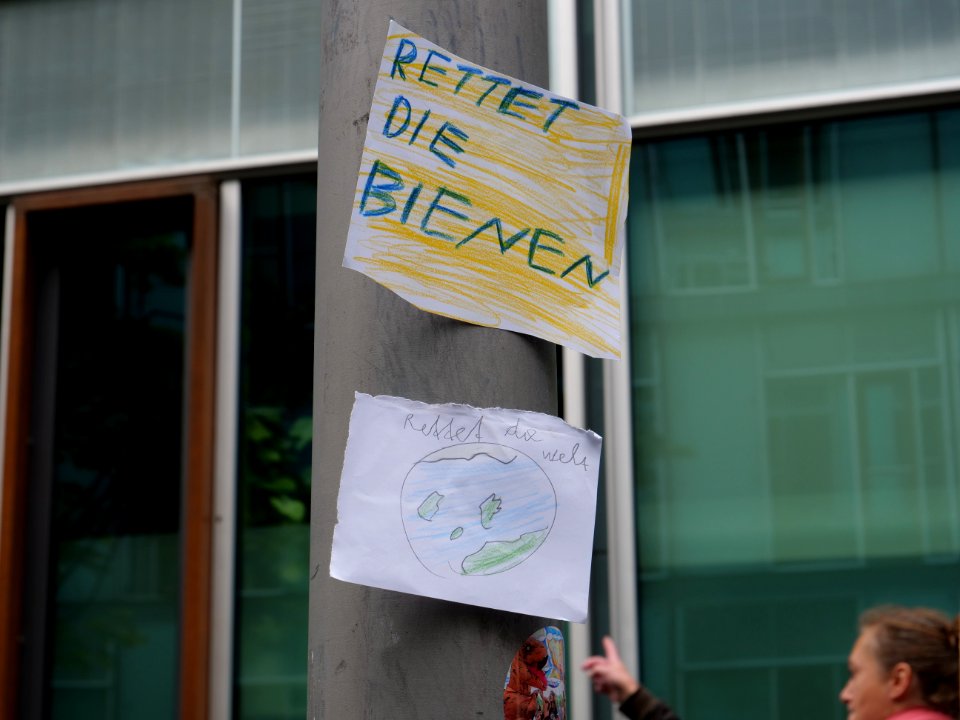 RETTET
DIE
BIENEN
Rettet die
Welt